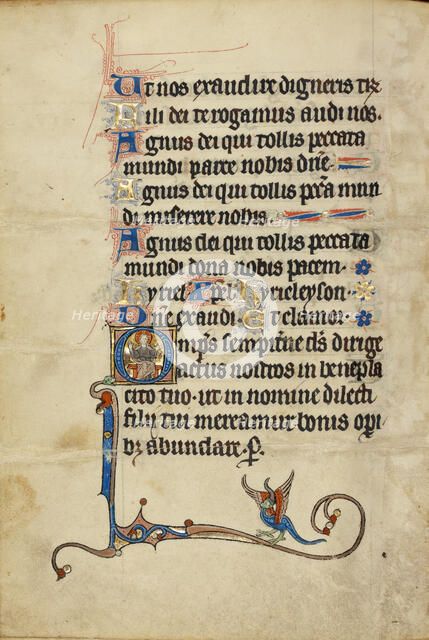 Ut nos exaudire digneris te r
Fili dei te rogamus audi nos.
Agnus dei qui tollis peccata
mundi parce nobis dñe.
Agnus dei qui tollis pcc̃a mun
di miserere nobis.
Agnus dei qui tollis peccata
mundi dona nobis pacem.
Kyriel xpel kyrieleyson.
Dñe exaudi Et clamor.
Omp̃s sempit̃ne d̃s dirige
actus nostros in benepla
cito tuo. ut in nomine dilecti
filii tui mereamur bonis op̃i
bꝫ abundare. p̃.
Heritage Heritage
Images
Heritage Heritage
Images